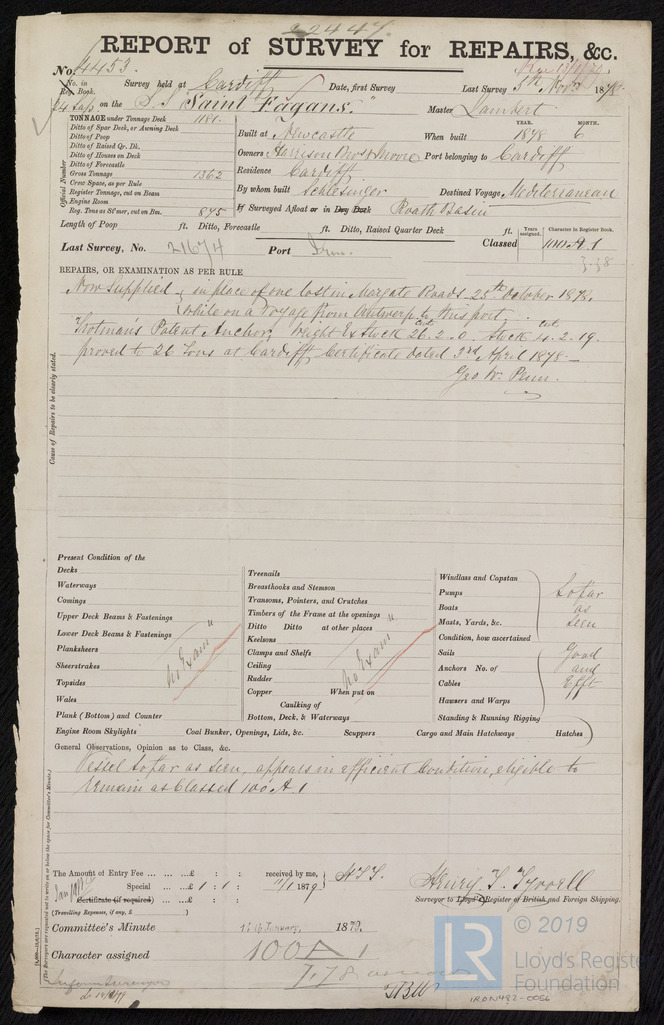 22447.
REPORT of SURVEY for REPAIRS, &c.
No. 4453
No. in Reg. Book. Survey held at Cardiff Date, first Survey Last Survey 5th Novr 1878
on the S.S. "Saint Fagans." Master Lambert
TONNAGE under Tonnage Deck 1181
Ditto of Spar Deck, or Awning Deck
Ditto of Poop
Ditto of Raised Qr. Dk.
Ditto of Houses on Deck
Ditto of Forecastle
Gross Tonnage 1362
Crew Space, as per Rule
Register Tonnage, cut on Beam
Engine Room
Reg. Tons as St'mer, cut on Bm. 875
Official Number
Built at Newcastle When built YEAR. 1878 MONTH. 6
Owners Harrison Bros & Moore Port belonging to Cardiff
Residence Cardiff
By whom built Schlesinger Destined Voyage Mediterranean
If Surveyed Afloat or in Dry Dock Roath Basin
Length of Poop ft. Ditto, Forecastle ft. Ditto, Raised Quarter Deck ft.
Last Survey, No. 21674 Port Classed Years assigned. Character in Register Book. 100 A 1
REPAIRS, OR EXAMINATION AS PER RULE
Now Supplied in place of one lost in Margate Roads 25th October 1878.
while on a Voyage from Antwerp to this port.
Trotman's Patent Anchor, Weight Ex Stock Cwt 26.2.0. Stock Cwt 4.2.19.
proved to 26 Tons at Cardiff Certificate dated 3rd April 1878 —
Geo W. Penn.
Cause of Repairs to be clearly stated.
Present Condition of the
Decks
Waterways
Comings
Upper Deck Beams & Fastenings
Lower Deck Beams & Fastenings
Planksheers
Sheerstrakes
Topsides
Wales
Plank (Bottom) and Counter
no Exam"
Treenails
Breasthooks and Stemson
Transoms, Pointers, and Crutches
Timbers of the Frame at the openings
Ditto Ditto at other places
Keelsons
Clamps and Shelfs
Ceiling
Rudder
Copper When put on
Caulking of
Bottom, Deck, & Waterways
no Exam"
Windlass and Capstan
Pumps
Boats
Masts, Yards, &c.
Condition, how ascertained
Sails
Anchors No. of
Cables
Hawsers and Warps
Standing & Running Rigging
So far
as
seen
Good
and
Efft
Engine Room Skylights Coal Bunker, Openings, Lids, &c. Scuppers Cargo and Main Hatchways Hatches
General Observations, Opinion as to Class, &c.
Vessel so far as Seen, appears in efficient Condition, eligible to
remain as Classed 100 A 1
The Amount of Entry Fee ... ... ...£ : : received by me,
Special ... ...£ 1 : 1 : 11/1 1879
Certificate (if required) ... ...£ : :
(Travelling Expenses, if any, £ )
Henry T. Tyrrell
Surveyor to Lloyd's Register of British and Foreign Shipping.
Committee's Minute January, 1879.
Character assigned 100 A 1
7.78
(The Surveyors are requested not to write on or below the space for Committee's Minute.)
© 2019
LR
Lloyd's Register
Foundation
IRON492-0056